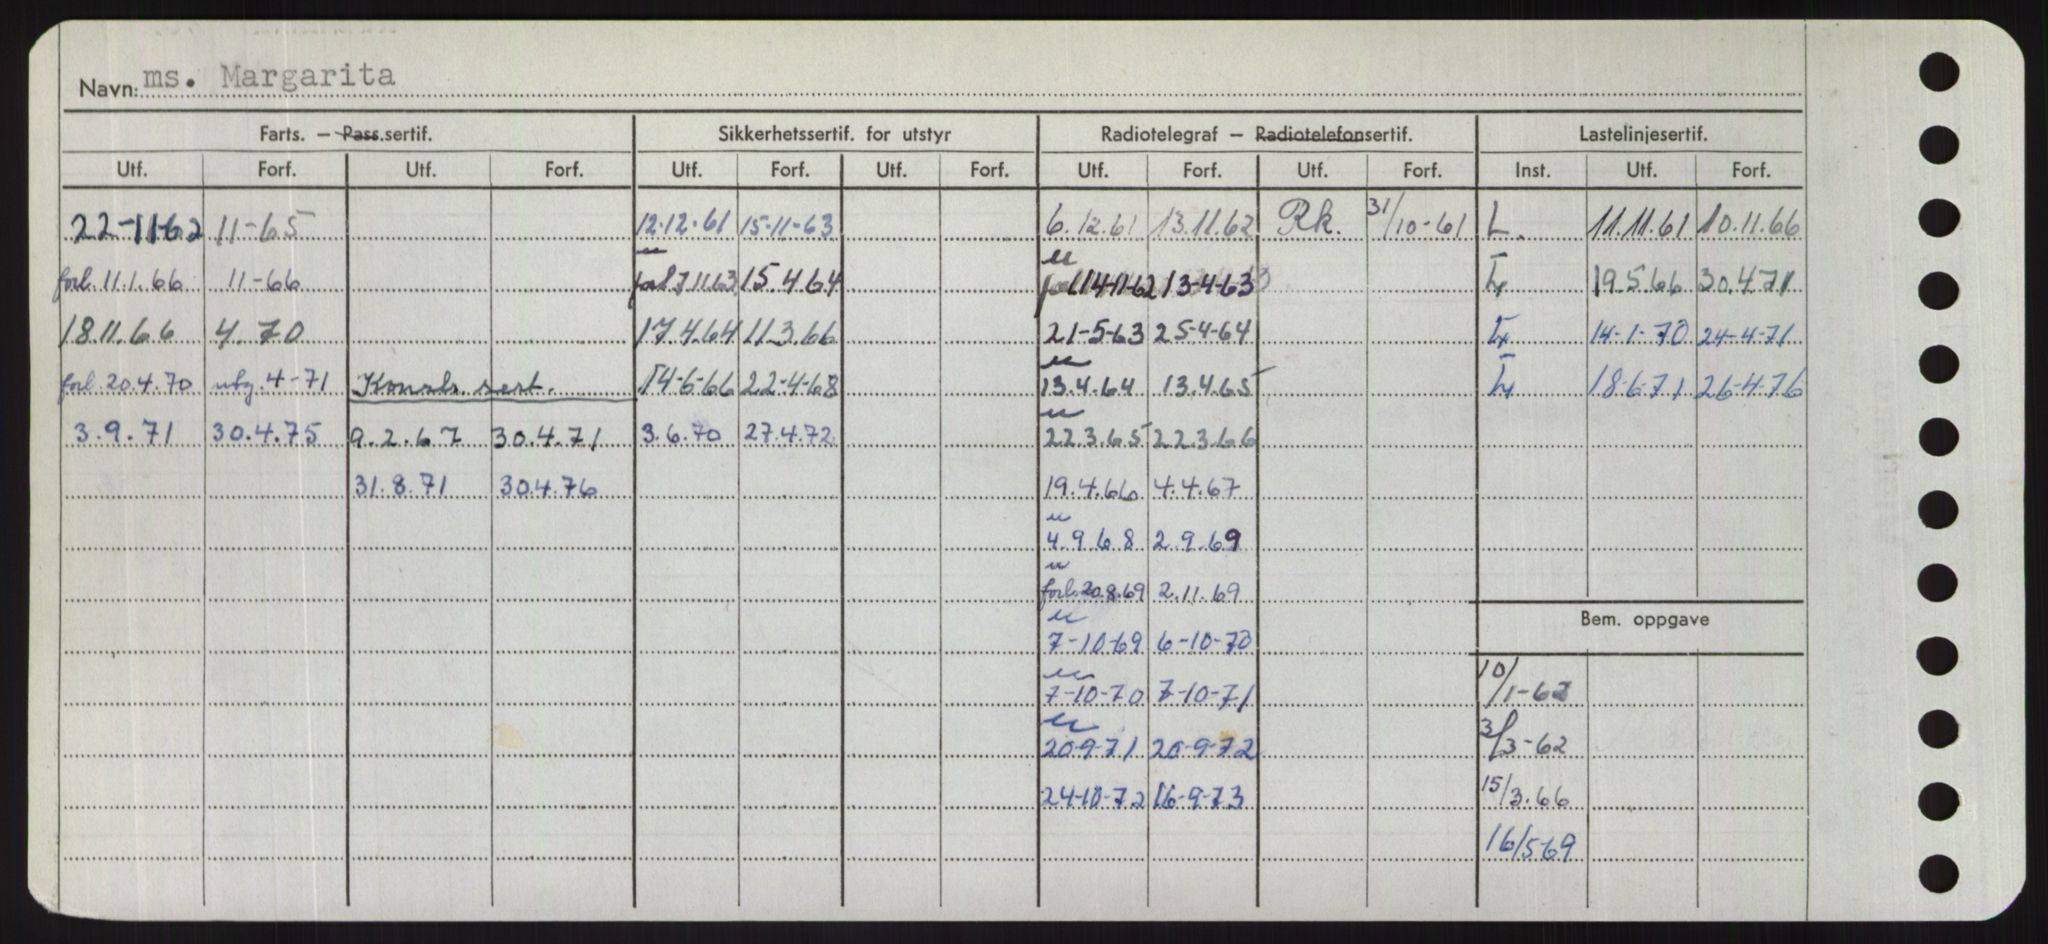 Navn: ms. Margarita
Farts. – Pass.sertif. Sikkerhetssertif. for utstyr Radiotelegraf – Radiotelefonsertif. Lastelinjesertif.
Utf. Forf. Utf. Forf. Utf. Forf. Utf. Forf. Utf. Forf. Utf. Forf. Inst. Utf. Forf.
22-11-62 11-65 12.12.61 15-11-63 6.12.61 13.11.62 Rk. 31/10-61 L. 11.11.61 10.11.66
forl. 11.1.66 11-66 forl 7.11.63 15.4.64 forl 14-11-62 13-4-63 19.5.66 30.4.71
18.11.66 4.70 17.4.64 11.3.66 21-5-63 25-4-64 14-1-70 24-4-71
forl. 20.4.70 utg. 4-71 Konstr. sert. 14-6-66 22-4-68 13.4.64 13.4.65 18.6.71 26-4-76
3.9.71 30.4.75 9.2.67 30.4.71 3.6.70 27.4.72 22.3.65 22.3.66
31.8.71 30.4.76 19.4.66 4.4.67
4.9.68 2.9.69
forl. 20.8.69 2.11.69
Bem. oppgave
7-10-69 6-10-70
7-10-70 7-10-71 10/1-62
20-9-71 20-9-72 3/3-62
24-10-72 16-9-73 15/3.66
16/5 69